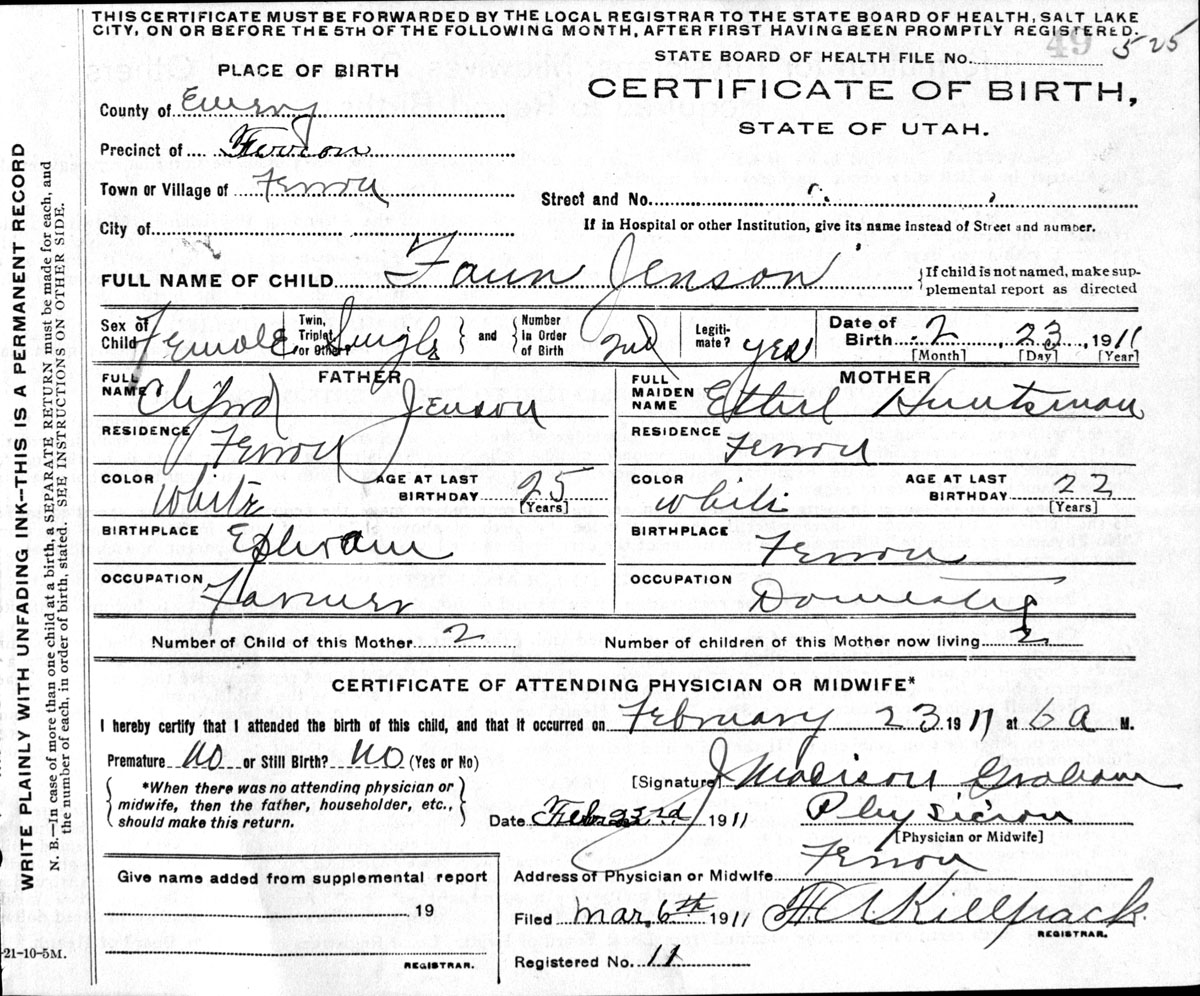 THIS CERTIFICATE MUST BE FORWARDED BY THE LOCAL REGISTRAR TO THE STATE BOARD OF HEALTH, SALT LAKE
CITY, ON OR BEFORE THE 5TH OF THE FOLLOWING MONTH, AFTER FIRST HAVING BEEN PROMPTLY REGISTERED.
49 525
STATE BOARD OF HEALTH FILE No.
PLACE OF BIRTH
CERTIFICATE OF BIRTH,
STATE OF UTAH.
County of Emery
Precinct of Ferron
Town or Village of Ferron
Street and No.
City of
If in Hospital or other Institution, give its name instead of Street and number.
FULL NAME OF CHILD Faun Jenson
If child is not named, make sup-
plemental report as directed
Sex of Child Female
Twin, Triplet or Other? Single and Number In Order of Birth 2nd
Legiti-mate? yes
Date of Birth 2, 23, 1911
[Month] [Day] [Year]
FATHER
FULL NAME Cliford Jenson
MOTHER
FULL MAIDEN NAME Ethel Huntsman
RESIDENCE Ferron
RESIDENCE Ferron
COLOR White AGE AT LAST BIRTHDAY 25 [Years]
COLOR White AGE AT LAST BIRTHDAY 22 [Years]
BIRTHPLACE Ephraim
BIRTHPLACE Ferron
OCCUPATION Farmer
OCCUPATION Domestic
Number of Child of this Mother 2
Number of children of this Mother now living 2
CERTIFICATE OF ATTENDING PHYSICIAN OR MIDWIFE*
I hereby certify that I attended the birth of this child, and that it occurred on February 23 1911 at 6 a M.
Premature no or Still Birth? no (Yes or No)
*When there was no attending physician or
midwife, then the father, householder, etc.,
should make this return.
[Signature] J Madison Graham
Date Feb 23rd 1911 Physician
[Physician or Midwife]
Address of Physician or Midwife Ferron
Give name added from supplemental report
19
REGISTRAR.
Filed Mar, 6th 1911 H A Killpack
REGISTRAR.
Registered No. 11
-21-10-5M.
WRITE PLAINLY WITH UNFADING INK--THIS IS A PERMANENT RECORD
N. B.—In case of more than one child at a birth, a SEPARATE RETURN must be made for each, and
the number of each, in order of birth, stated. SEE INSTRUCTIONS ON OTHER SIDE.